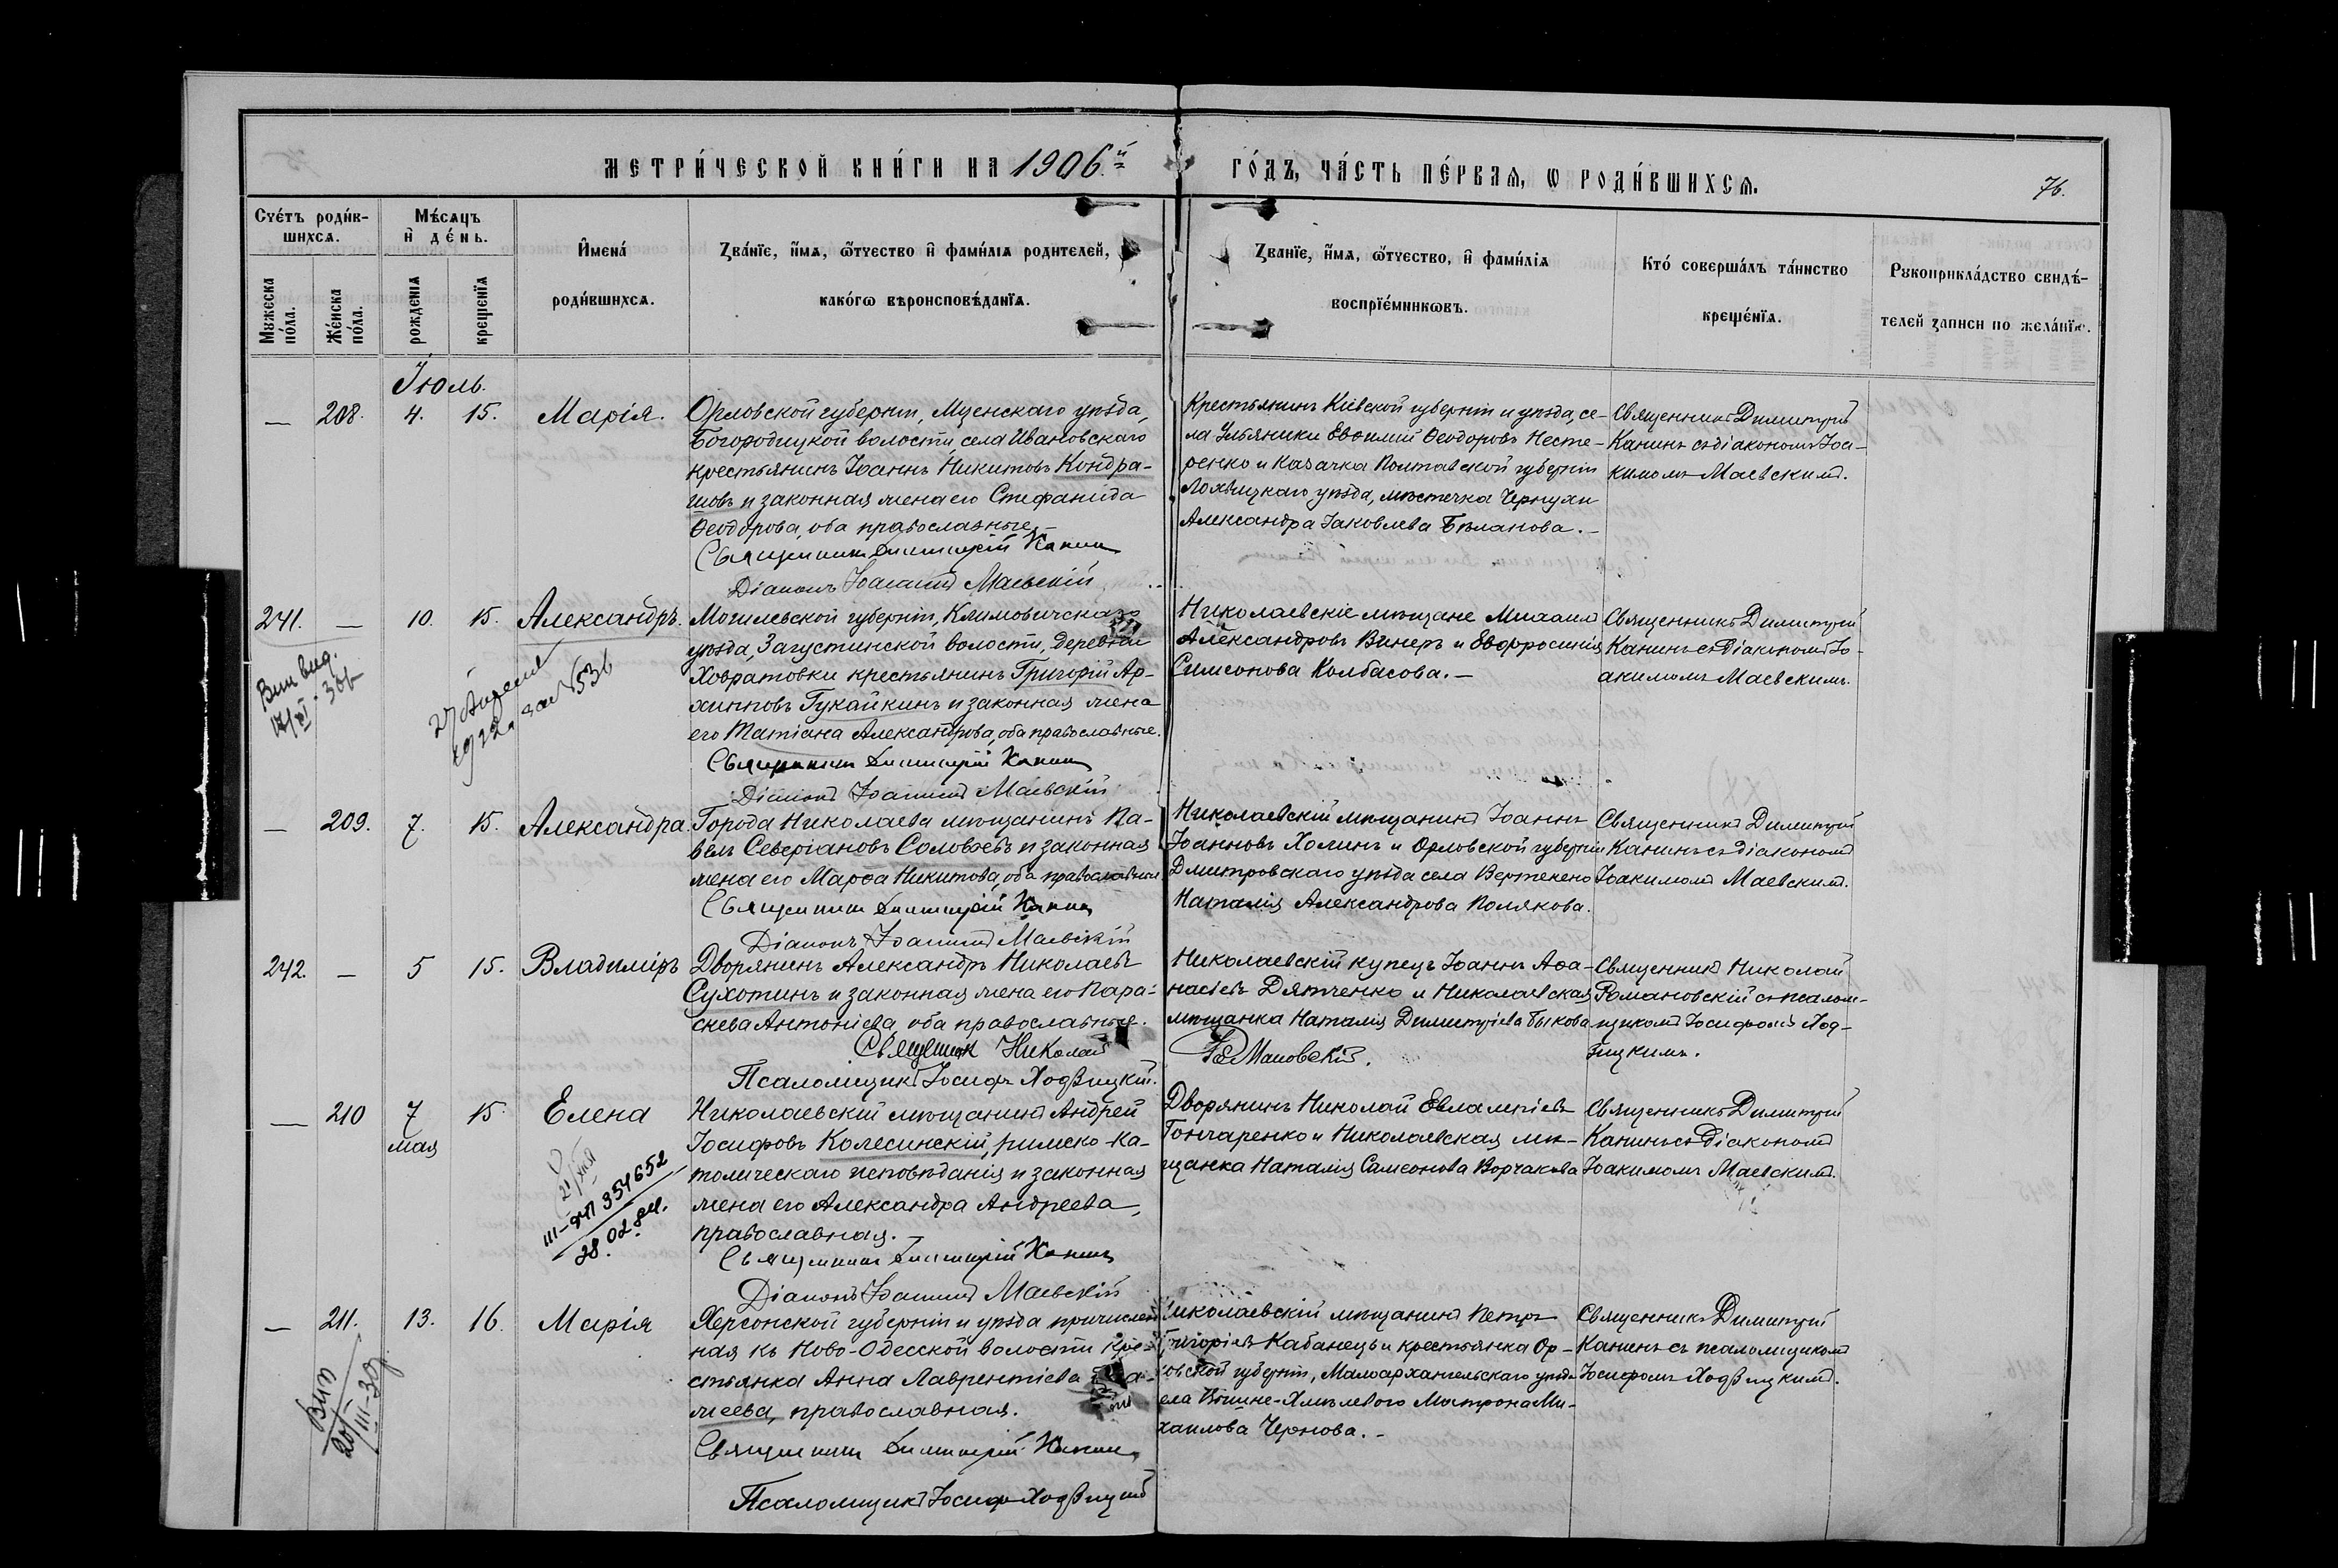 МЕТРИ́ЧЕСКОЙ КНИ́ГИ НА 1906.й
ГО́ДЪ, ЧА́СТЬ ПЕ́РВАѦ, Ѡ РОДИ́ВШИХСѦ.
76.
Сче́тъ роди́в-
шихсѧ.
Мꙋжеска
по́ла.
Же́нска
по́ла.
Мѣ́сѧцъ
и҆ де́нь.
рожденїѧ
крещенїѧ
И҆мена́
роди́вшихсѧ.
Ꙁва́нїе, и҆́мѧ, ѻ҆́тчество и҆ фами́лїѧ родителей,
како́гѡ вѣроисповѣ́данїѧ.
Ꙁванїе, и҆́мѧ, ѻ҆́тчество, и҆ фами́лїѧ
воспрїе́мникѡвъ.
Кто́ соверша́лъ та́инство
креще́нїѧ.
Рꙋкоприкла́дство свидѣ́-
телей ꙁаписи по жела́нїю.
Іюль.
— 208. 4. 15. Марія.
Орловской губерніи, Мценскаго уѣзда,
Богородицкой волости, села Ивановскаго
крестьянинъ Іоаннъ Никитовъ Кондра-
шовъ и законная жена его Стефанида
Ѳеодорова, оба православные.
Священникъ Димитрій Канинъ
Діаконъ Іоакимъ Маевскій
Крестьянинъ Кіевской губерніи и уѣзда, се-
ла Ульяники Евѳимій Ѳеодоровъ Несте-
ренко и казачка Полтавской губерніи
Лохвицкаго уѣзда, мѣстечка Чернухи
Александра Іаковлева Бѣланова. —
Священникъ Димитрій
Канинъ съ діакономъ Іоа-
кимомъ Маевскимъ.
241. — 10. 15. Александръ.
Могилевской губерніи, Климовичскаго
уѣзда, Загустинской волости, деревни
Ховратовки крестьянинъ Григорій Ар-
хиповъ Гукайкинъ и законная жена
его Татіана Александрова, оба православные.
Священникъ Димитрій Канинъ
Діаконъ Іоакимъ Маевскій
Николаевскіе мѣщане Михаилъ
Александровъ Винеръ и Евфросинія
Симеонова Колбасова. —
Священникъ Димитрій
Канинъ съ діакономъ Іо-
акимомъ Маевскимъ.
1922 за № 536
— 209. 7. 15. Александра.
Города Николаева мѣщанинъ Па-
велъ Северіановъ Соловьевъ и законная
жена его Марѳа Никитова, оба православные
Священникъ Димитрій Канинъ
Діаконъ Іоакимъ Маевскій
Николаевскій мѣщанинъ Іоаннъ
Іоанновъ Холинъ и Орловской губерніи
Дмитровскаго уѣзда села Вертекено
Наталія Александрова Полякова.
Священникъ Димитрій
Канинъ съ діакономъ
Іоакимомъ Маевскимъ.
242. — 5 15. Владиміръ
Дворянинъ Александръ Николаевъ
Сухотинъ и законная жена его Пара-
скева Антоніева, оба православные.
Священникъ Николай
Романовскій.
Псаломщикъ Іосифъ Ходзицкій.
Николаевскій купецъ Іоаннъ Аѳа-
насіевъ Дятченко и Николаевская
мѣщанка Наталія Димитріева Быкова
Священникъ Николай
Романовскій съ псалом-
щикомъ Іосифомъ Ход-
зицкимъ.
— 210 7 15. Елена
мая
Николаевскій мѣщанинъ Андрей
Іосифовъ Колесинскій, римско-ка-
толическаго исповѣданія и законная
жена его Александра Андреева,
православная. —
Священникъ Димитрій Канинъ
Діаконъ Іоакимъ Маевскій
Дворянинъ Николай Евлампіевъ
Гончаренко и Николаевская мѣ-
щанка Наталія Самсонова Ворчакова
Священникъ Димитрій
Канинъ съ діакономъ
Іоакимомъ Маевскимъ.
354652
28.02.
— 211. 13. 16. Марія
Херсонской губерніи и уѣзда причислен-
ная къ Ново-Одесской волости кре-
стьянка Анна Лаврентіева
меева, православная.
Священникъ Димитрій Канинъ
Псаломщикъ Іосифъ Ходзицкій
Николаевскій мѣщанинъ Петръ
Григоріевъ Кабанецъ и крестьянка Ор-
ловской губерніи, Малоархангельскаго уѣзда
села Вышне-Хмѣлевого Матрона Ми-
хаилова Чернова. —
Священникъ Димитрій
Канинъ съ псаломщикомъ
Іосифомъ Ходзицкимъ.